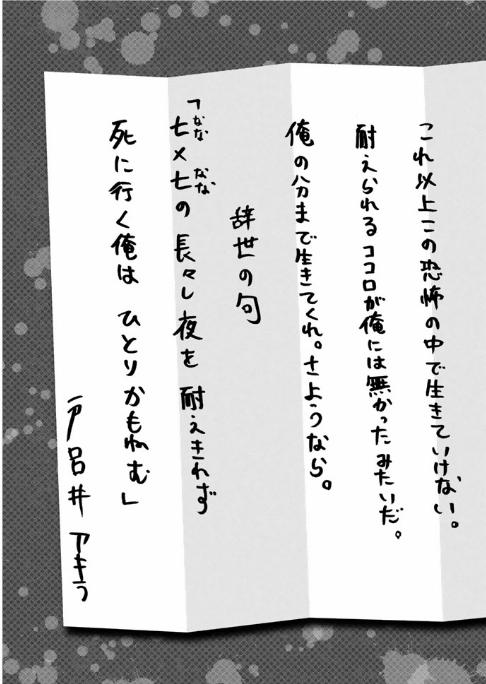 これ以上この恐怖の中で生きていけない。
耐えられるココロが俺には無かったみたいだ。
俺の分まで生きてくれ。さようなら。
辞世の句
「七×七の長々し夜を耐えきれず
なな なな
死に行く俺はひとりかもねむ」
戸呂井アキラ